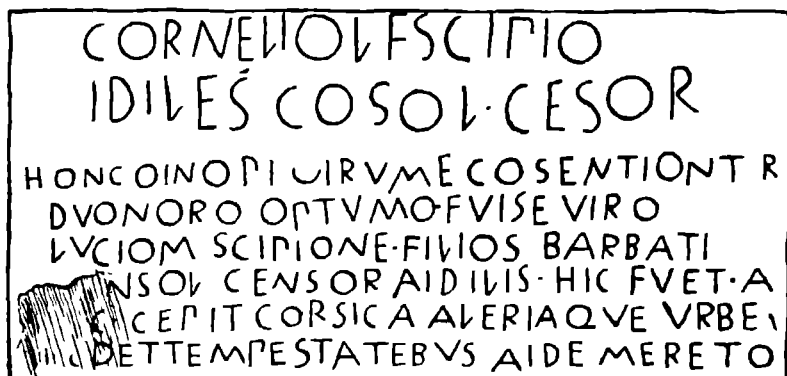 CORNELIO L F SCIPIO
IDILES COSOL·CESOR
HONC OINO PLOIRVME COSENTIONT R
DVONORO OPTVMO·FVISE VIRO
LVCIOM SCIPIONE·FILIOS BARBATI
NSOL CENSOR AIDILIS·HIC FVET·A
CEPIT CORSICA ALERIAQVE VRBE
DET TEMPESTATEBVS AIDE MERETO